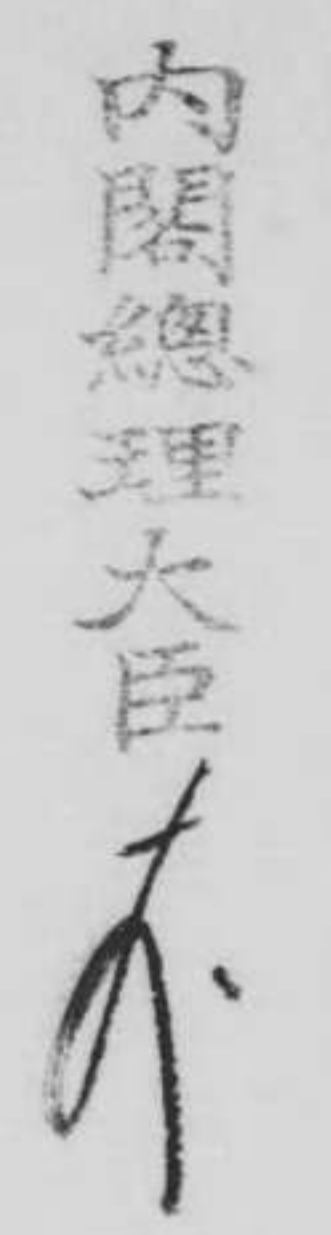 内閣總理大臣